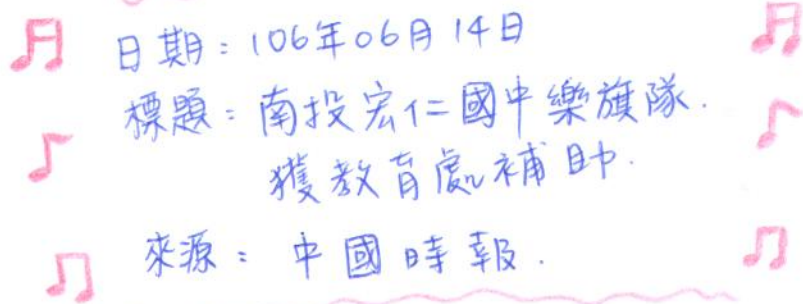 日期：106年06月14日
標題：南投宏仁國中樂旗隊.
獲教育處補助.
來源：中國時報.